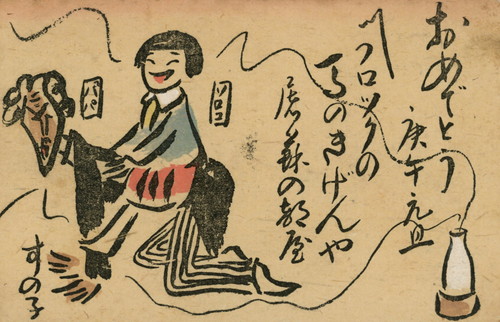 おめでとう
庚午元旦
フロックの
馬のきげんや
屠蘇の部屋
パパ
すの子